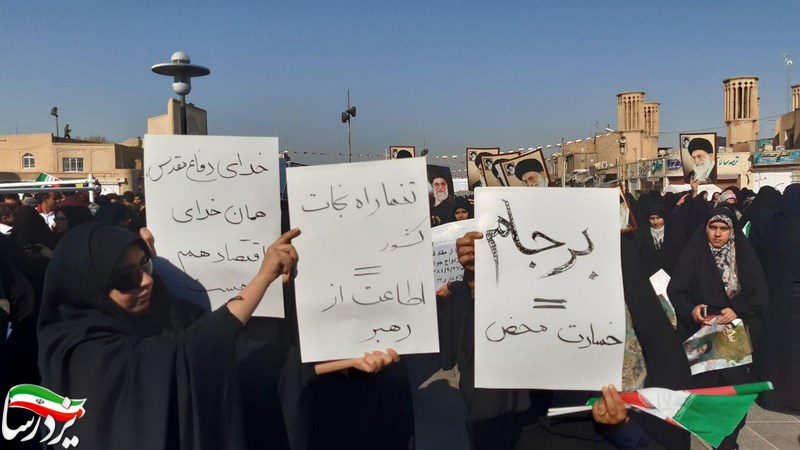 برجام
=
خسارت محض
تنها راه نجات
کشور
=
اطاعت از
رهبر
خدای دفاع مقدس،
همان خدای
اقتصاد هم
هست
یزد رسا